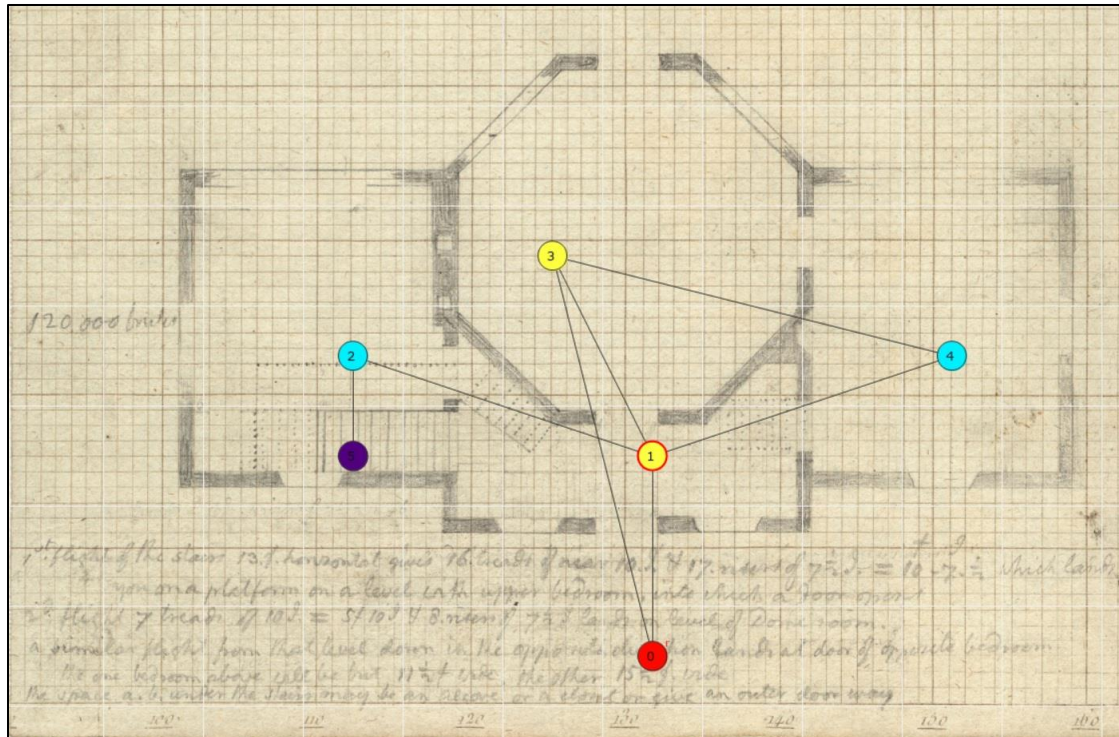 3
120,000 bricks
2
4
5
1
1st. flight of the stairs 13.f. horizontal gives 16. treads of near 10.I. & 17. risers of 7½ I. = 10f-7.½I which lands
you on a platform on a level with upper bedroom, into which a door opens
2d. flight 7 treads of 10I. = 5f 10I & 8. risers of 7½ I lands on level of Dome room.
a similar flight from that level down in the opposite direction lands at door of opposite bedroom
0
the one bedroom above will be but 11½ f wide, the other 15½ f. wide
the space a.b. under the stairs may be an alcove or a closet or give an outer door way
100 110 120 130 140 150 160